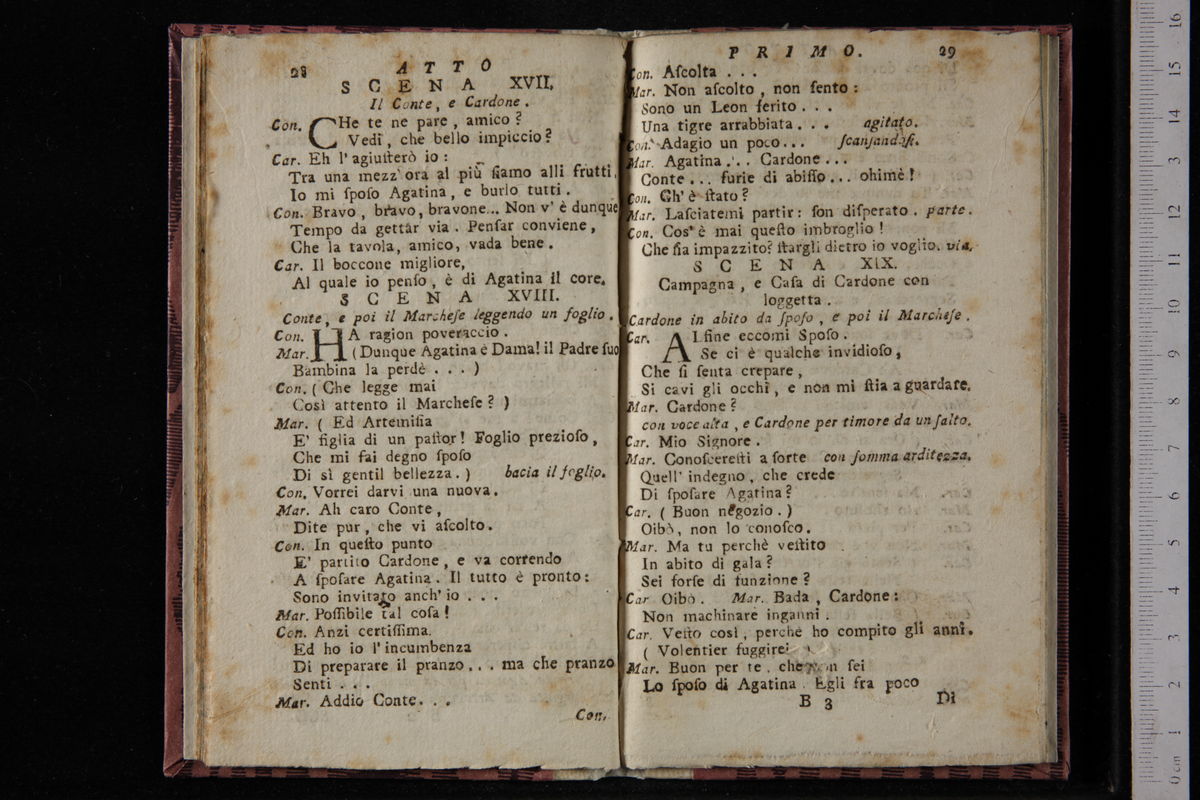 28 ATTO
SCENA XVII.
Il Conte, e Cardone.
Con. CHe te ne pare, amico?
Vedi, che bello impiccio?
Car. Eh l'agiuſterò io:
Tra una mezz'ora al più ſiamo alli frutti,
Io mi ſpoſo Agatina, e burlo tutti.
Con. Bravo, bravo, bravone... Non v'è dunque
Tempo da gettar via. Penſar conviene,
Che la tavola, amico, vada bene.
Car. Il boccone migliore,
Al quale io penſo, è di Agatina il core.
SCENA XVIII.
Conte, e poi il Marcheſe leggendo un foglio.
Con. HA ragion poveraccio.
Mar. (Dunque Agatina è Dama! il Padre ſuo
Bambina la perdè . . . )
Con. ( Che legge mai
Così attento il Marcheſe? )
Mar. ( Ed Artemiſia
E' figlia di un paſtor! Foglio prezioſo,
Che mi fai degno ſpoſo
Di sì gentil bellezza. ) bacia il foglio.
Con. Vorrei darvi una nuova.
Mar. Ah caro Conte,
Dite pur, che vi aſcolto.
Con. In queſto punto
E' partito Cardone, e va correndo
A ſpoſare Agatina. Il tutto è pronto:
Sono invitato anch'io . . .
Mar. Poſſibile tal coſa!
Con. Anzi certiſſima.
Ed ho io l'incumbenza
Di preparare il pranzo... ma che pranzo
Senti . . .
Mar. Addio Conte. . .
Con.
PRIMO. 29
Con. Aſcolta . . .
Mar. Non aſcolto, non ſento:
Sono un Leon ferito . . .
Una tigre arrabbiata. . . agitato.
Con. Adagio un poco... ſcanſandoſi.
Mar. Agatina... Cardone...
Conte... furie di abiſſo... ohimè!
Con. Ch'è ſtato?
Mar. Laſciatemi partir: ſon diſperato. parte.
Con. Cos'è mai queſto imbroglio!
Che ſia impazzito? ſtargli dietro io voglio. via.
SCENA XIX.
Campagna, e Caſa di Cardone con
loggetta.
Cardone in abito da ſpoſo, e poi il Marcheſe.
Car. ALfine eccomi Spoſo.
Se ci è qualche invidioſo,
Che ſi ſenta crepare,
Si cavi gli occhi, e non mi ſtia a guardare.
Mar. Cardone?
con voce alta, e Cardone per timore da un ſalto.
Car. Mio Signore.
Mar. Conoſcereſti a ſorte con ſomma arditezza.
Quell' indegno, che crede
Di ſpoſare Agatina?
Car. ( Buon negozio. )
Oibò, non lo conoſco.
Mar. Ma tu perchè veſtito
In abito di gala?
Sei forſe di funzione?
Car Oibò. Mar. Bada, Cardone:
Non machinare inganni.
Car. Veſto così, perchè ho compito gli anni.
( Volentier fuggirei
Mar. Buon per te, che non ſei
Lo ſpoſo di Agatina. Egli fra poco
B 3 Di